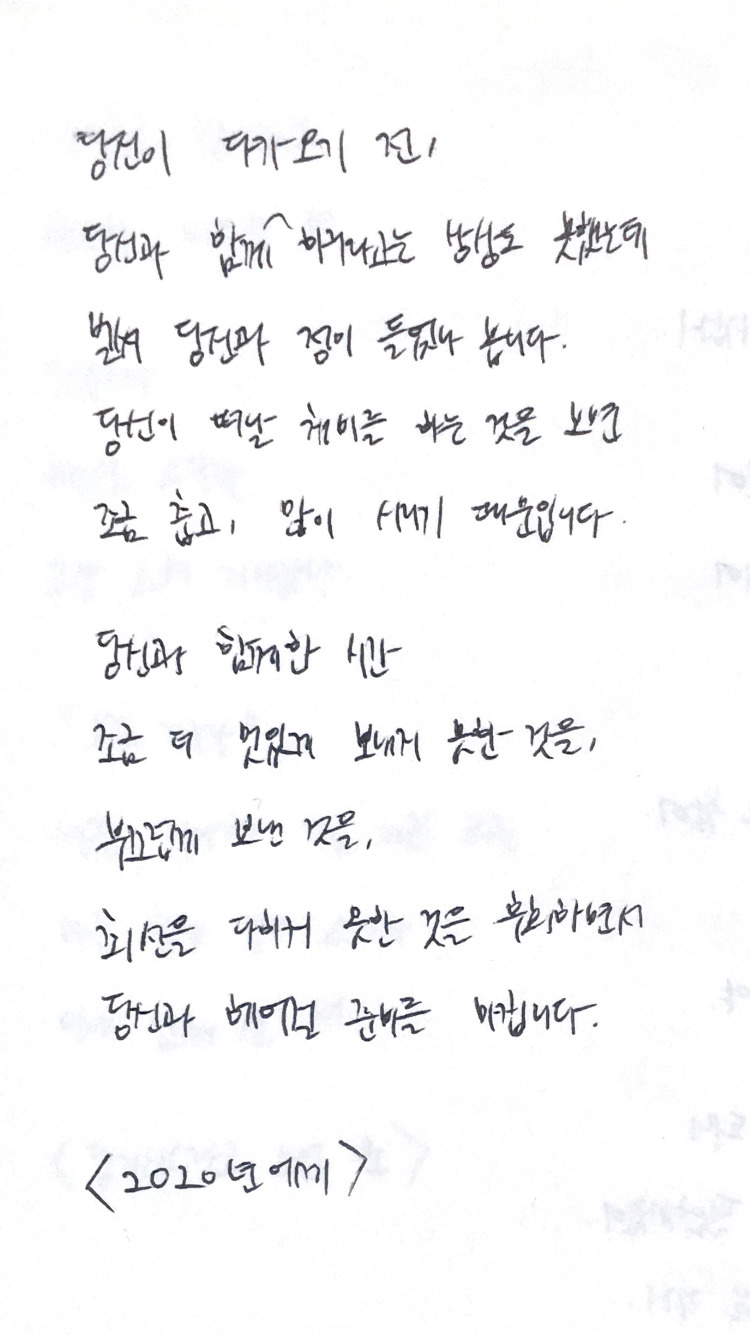 당신이 다가오기 전,
당신과 함께 하리라고는 상상도 못했는데
벌써 당신과 정이 들었나 봅니다.
당신이 떠날 채비를 하는 것을 보면
조금 춥고, 많이 시리기 때문입니다.
당신과 함께한 시간
조금 더 멋있게 보내지 못한 것을,
부끄럽게 보낸 것을,
최선을 다하지 못한 것을 후회하면서
당신과 헤어질 준비를 마칩니다.
<2020년에게>